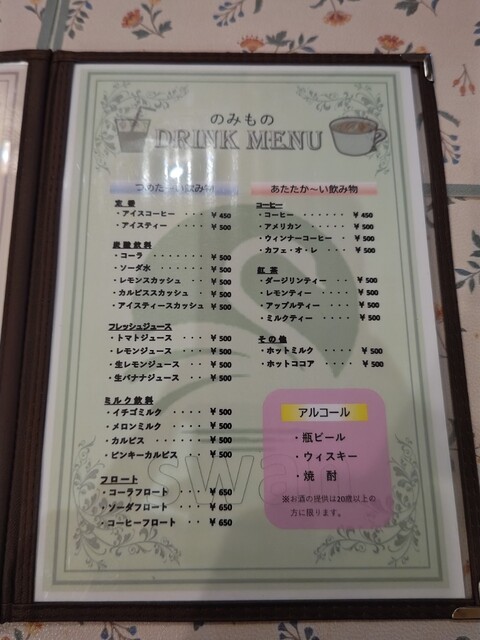 のみもの
DRINK MENU
つめた～い飲み物
定番
・アイスコーヒー ・・・・ ¥ 450
・アイスティー ・・・・ ¥ 500
炭酸飲料
・コーラ ・・・・・・・・ ¥ 500
・ソーダ水 ・・・・・・・ ¥ 500
・レモンスカッシュ ・・ ¥ 500
・カルピススカッシュ ・ ¥ 500
・アイスティースカッシュ ¥ 500
フレッシュジュース
・トマトジュース ・・・ ¥ 500
・レモンジュース ・・・ ¥ 500
・生レモンジュース ・・ ¥ 500
・生バナナジュース ・・ ¥ 500
ミルク飲料
・イチゴミルク ・・・・ ¥ 500
・メロンミルク ・・・・ ¥ 500
・カルピス ・・・・・・ ¥ 500
・ピンキーカルピス ・・ ¥ 500
フロート
・コーラフロート ・・・ ¥ 650
・ソーダフロート ・・・ ¥ 650
・コーヒーフロート ・・ ¥ 650
あたたか～い飲み物
コーヒー
・コーヒー ・・・・・・・ ¥ 450
・アメリカン ・・・・・ ¥ 500
・ウィンナーコーヒー ・ ¥ 500
・カフェ・オ・レ ・・・ ¥ 500
紅茶
・ダージリンティー ・・ ¥ 500
・レモンティー ・・・・ ¥ 500
・アップルティー ・・・ ¥ 500
・ミルクティー ・・・・ ¥ 500
その他
・ホットミルク ・・・・ ¥ 500
・ホットココア ・・・・ ¥ 500
アルコール
・瓶ビール
・ウィスキー
・焼 酎
※お酒の提供は20歳以上の
方に限ります。
swan